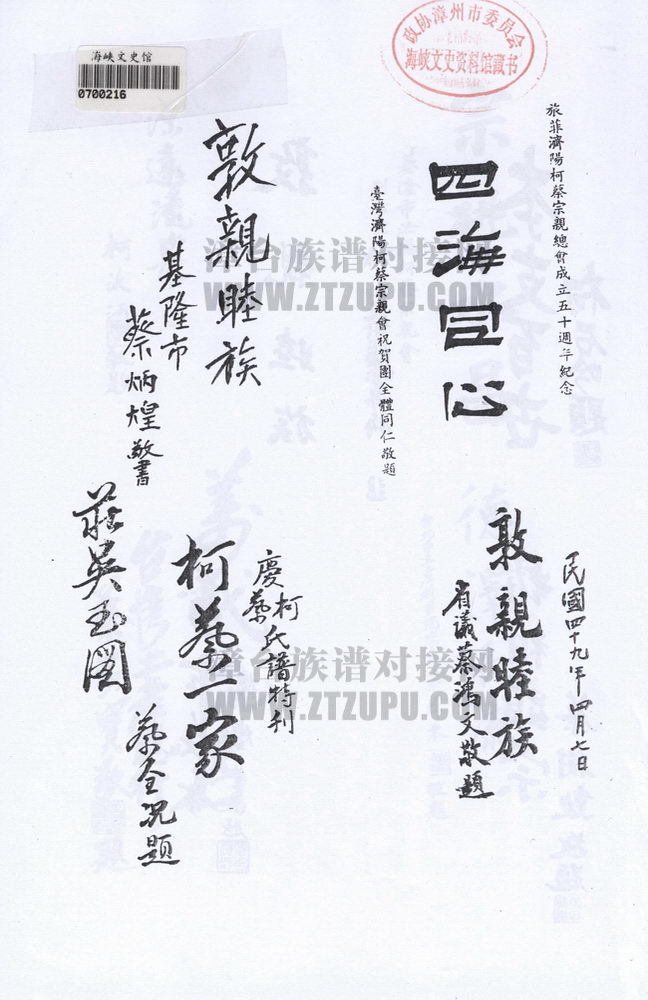 海峡文史馆
0700216
政协漳州市委员会
海峡文史资料馆藏书
旅菲濟陽柯蔡宗親總會成立五十週年紀念
四海同心
臺灣濟陽柯蔡宗親會祝賀團全體同仁敬題
敦親睦族
基隆市
蔡炳煌敬書
民國四十九年四月七日
敦親睦族
省議蔡鴻文敬題
慶柯蔡氏譜特刊
柯蔡一家
蔡全祝題
莊吳玉图
漳台族谱对接网
WWW.ZTZUPU.COM
漳台族谱对接网
WWW.ZTZUPU.COM